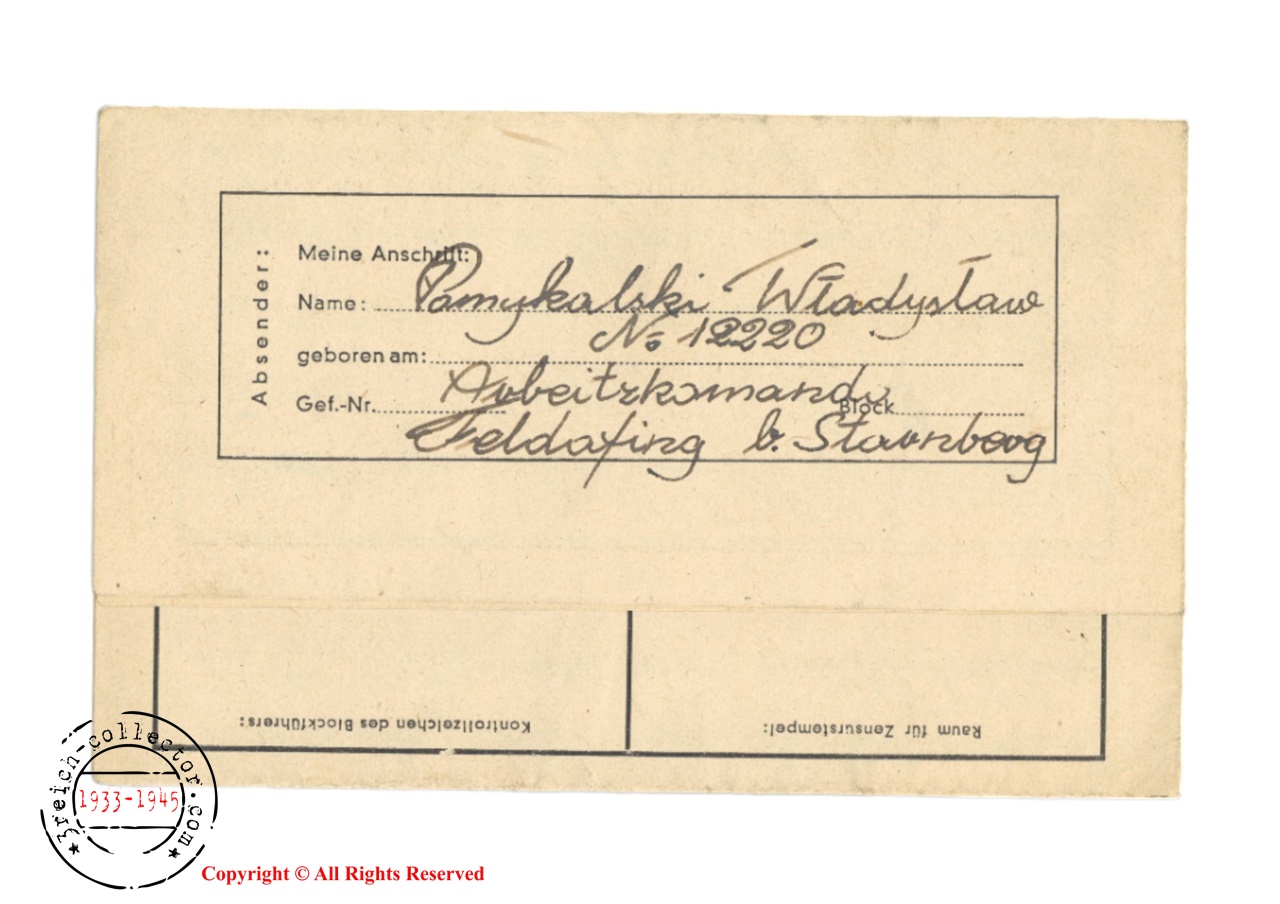 Absender:
Meine Anschrift:
Name: Pamykalski Władysław
No 12220
geboren am:
Arbeitzkomando
Gef.-Nr. Block
Feldafing b. Starnberg
Kontrollzeichen des Blockführers:
Raum für Zensurstempel:
3reich-collector.com
1933-1945
Copyright © All Rights Reserved